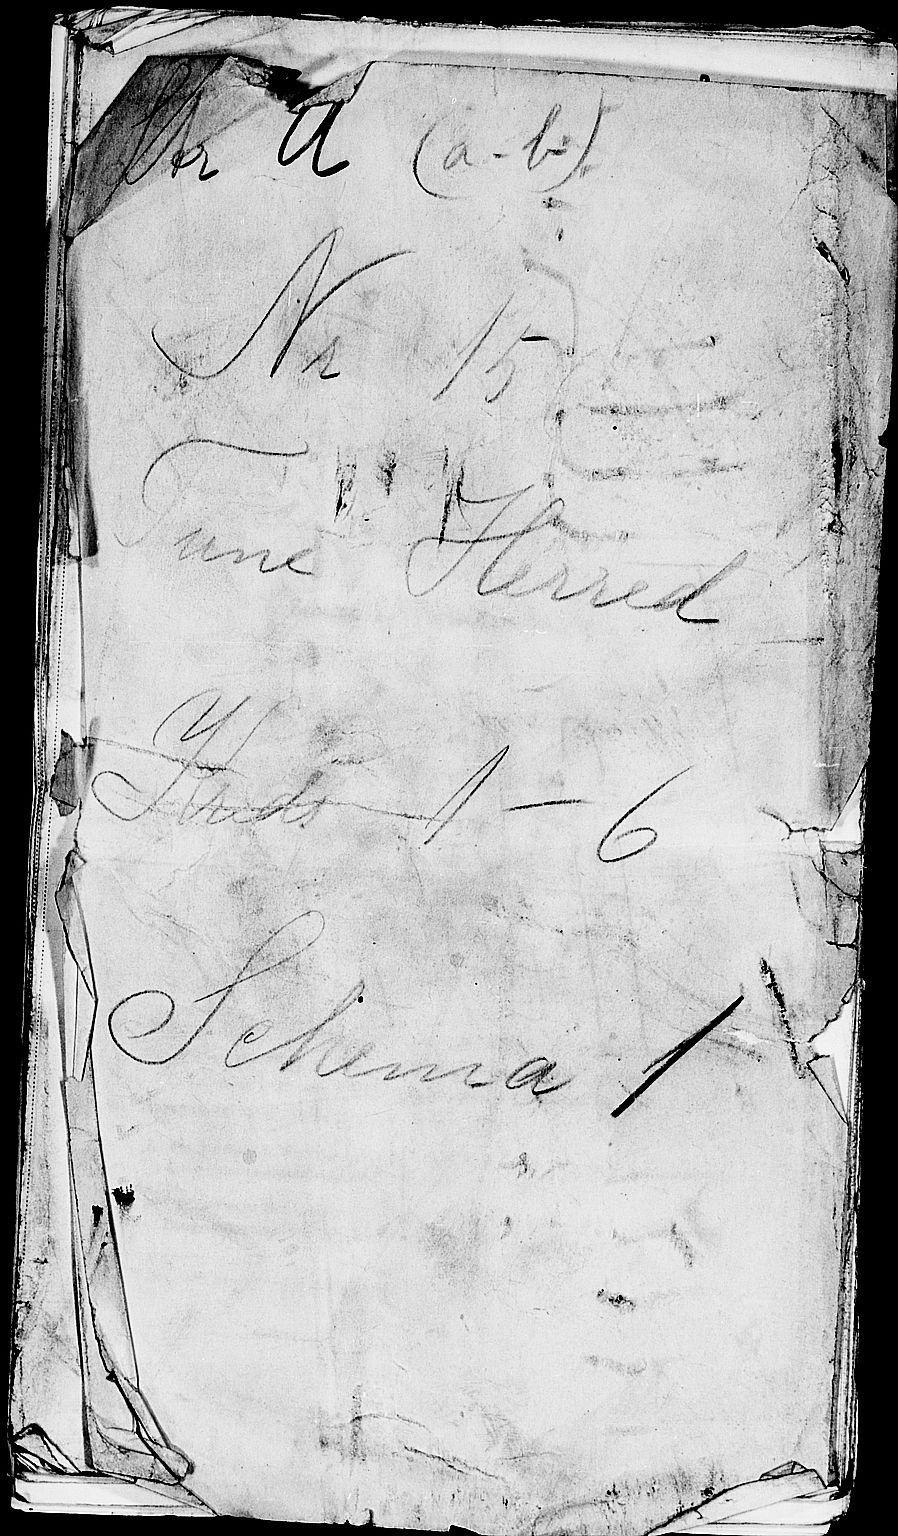 Litr A (a-b)
Nr 15
Tune Herred
1 – 6
Schema 1